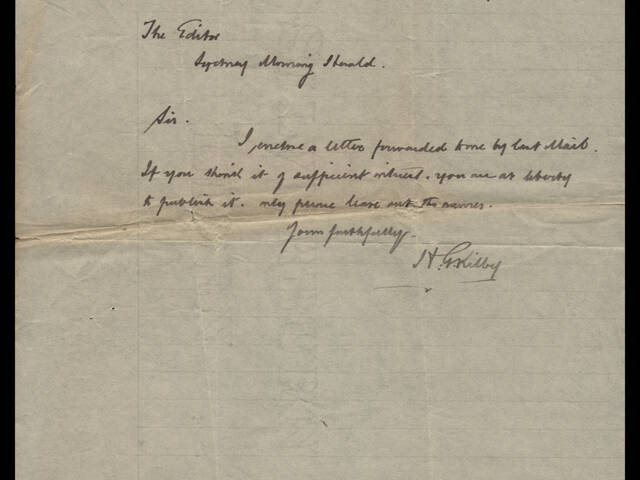 The Editor
Sydney Morning Herald.
Sir.
I enclose a letter forwarded to me by last Mail.
If you think it of sufficient interest. you are at liberty
to publish it. only please leave out the names.
Yours faithfully.
H. G. Kilby